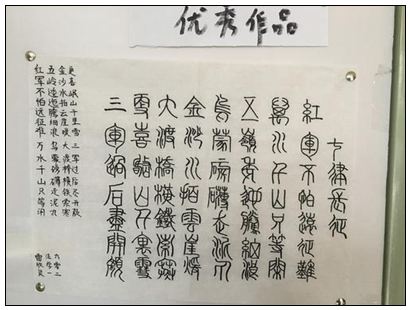 优秀作品
七律長征
紅軍不怕遠征難
萬水千山只等閑
五嶺逶迤騰細浪
烏蒙磅礴走泥丸
金沙水拍雲崖暖
大渡橋橫鐵索寒
更喜岷山千里雪
三軍過后盡開顏
红军不怕远征难 万水千山只等闲
五岭逶迤腾细浪 乌蒙磅礴走泥丸
金沙水拍云崖暖 大渡桥横铁索寒
更喜岷山千里雪 三军过后尽开颜